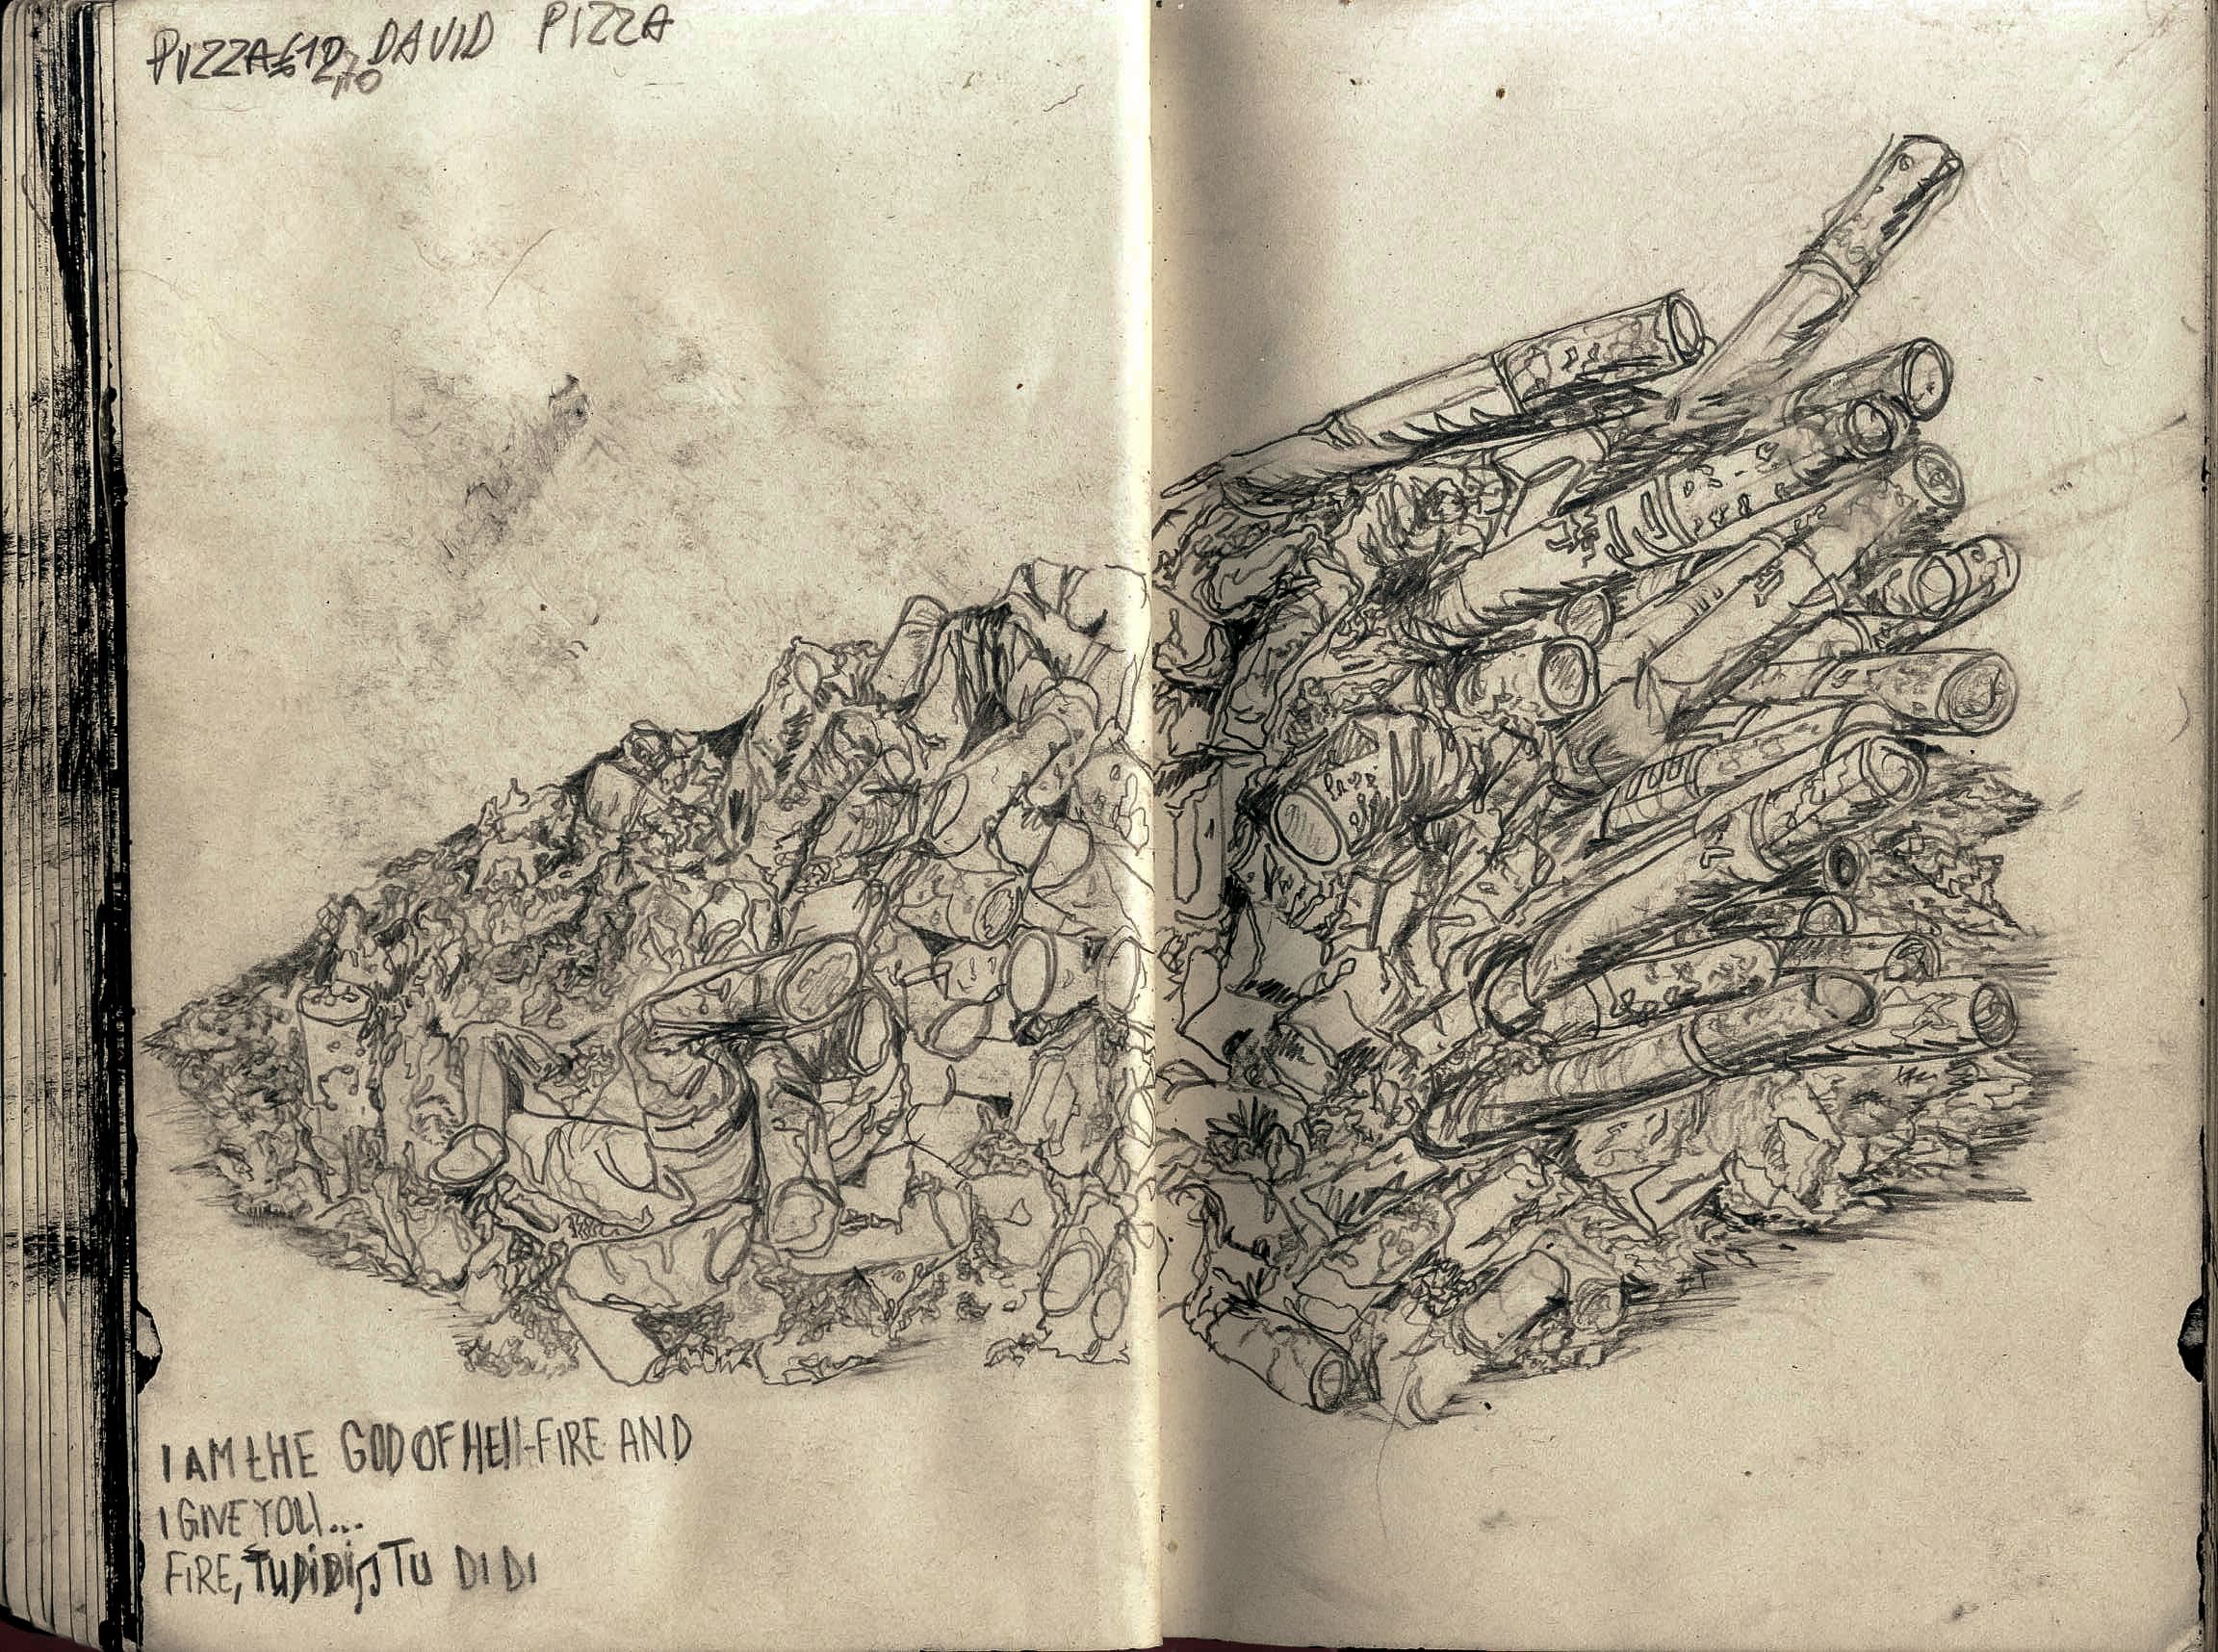 PIZZA DAVID PIZZA
I AM tHE GOD OF HEll-FIRE AND
I GIVE YOU...
FIRE, TU DI DI TU DI DI